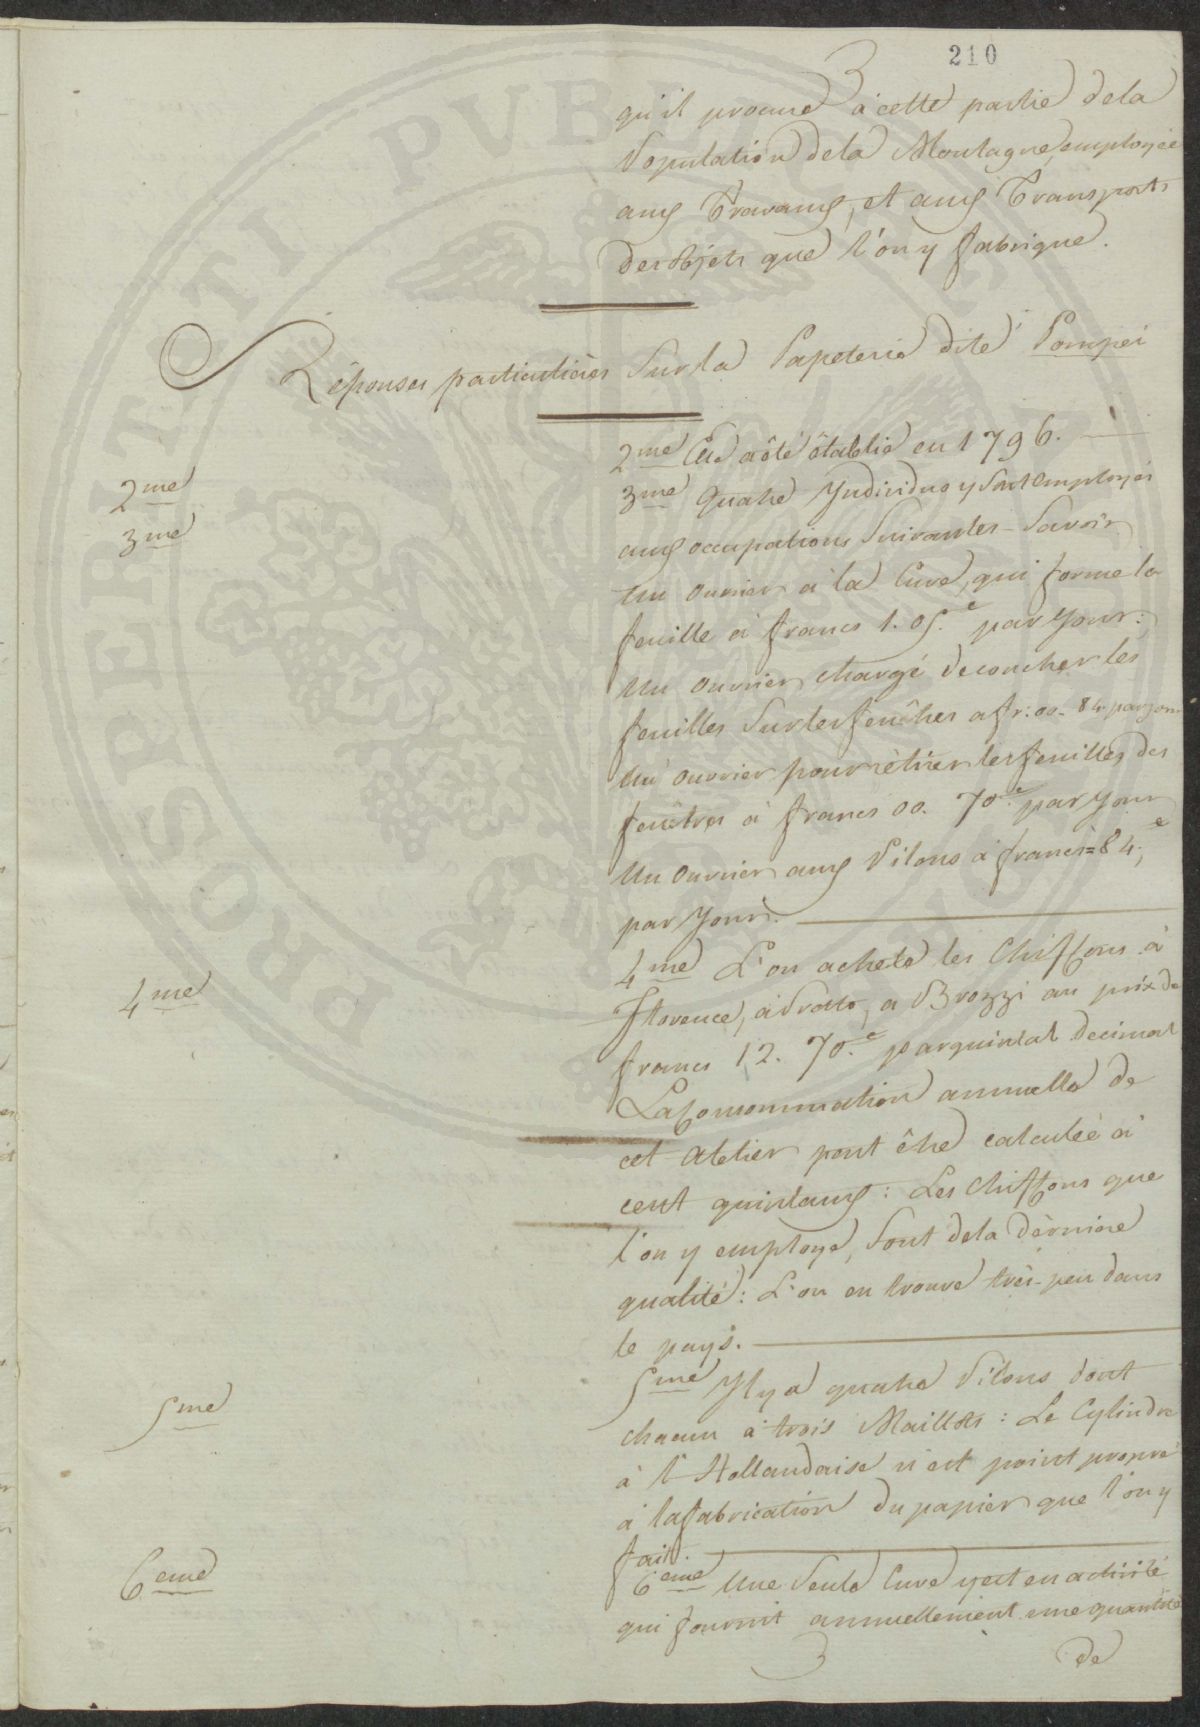 210
3
qu'il procure à cette partie de la
Population de la Montagne, employée
aux Travaux, et aux Transports
des objets que l'on y fabrique.
Réponses particulières sur la Papeterie dite Pompei
2me
2me Elle a été établie en 1796.
3me
3me Quatre Individus y sont employés
aux occupations suivantes Savoir
Un ouvrier à la Cuve, qui forme la
feuille à francs 1. 05.c par Jour:
Un ouvrier chargé de coucher les
feuilles sur les feutres a fr: 00. 84 par jour
Un ouvrier pour rètirer les feuilles des
feûtres à francs 00. 70.c par Jour
Un ouvrier aux Pilons à francs = 84.c
par Jour.
4me
4me L'on achete les Chiffons à
Florence, à Prato, a Brozzi au prix de
francs 12. 70.c par quintal decimal
La Consommation annuelle de
cet atelier peut être calculée à
cent quintaux: Les Chiffons que
l'on y employe, sont de la dèrnière
qualité: L'on en trouve très-peu dans
le pays.
5me
5me Il y a quatre Pilons dont
chacun à trois Maillets: Le Cylindre
à l'Hollandaise n'est point propre
à la fabrication du papier que l'on y
fait.
6eme
6eme Une Seule Cuve y est en activité
qui fournit annuellement une quantité
de
PROSPERITATI PVBLICAE